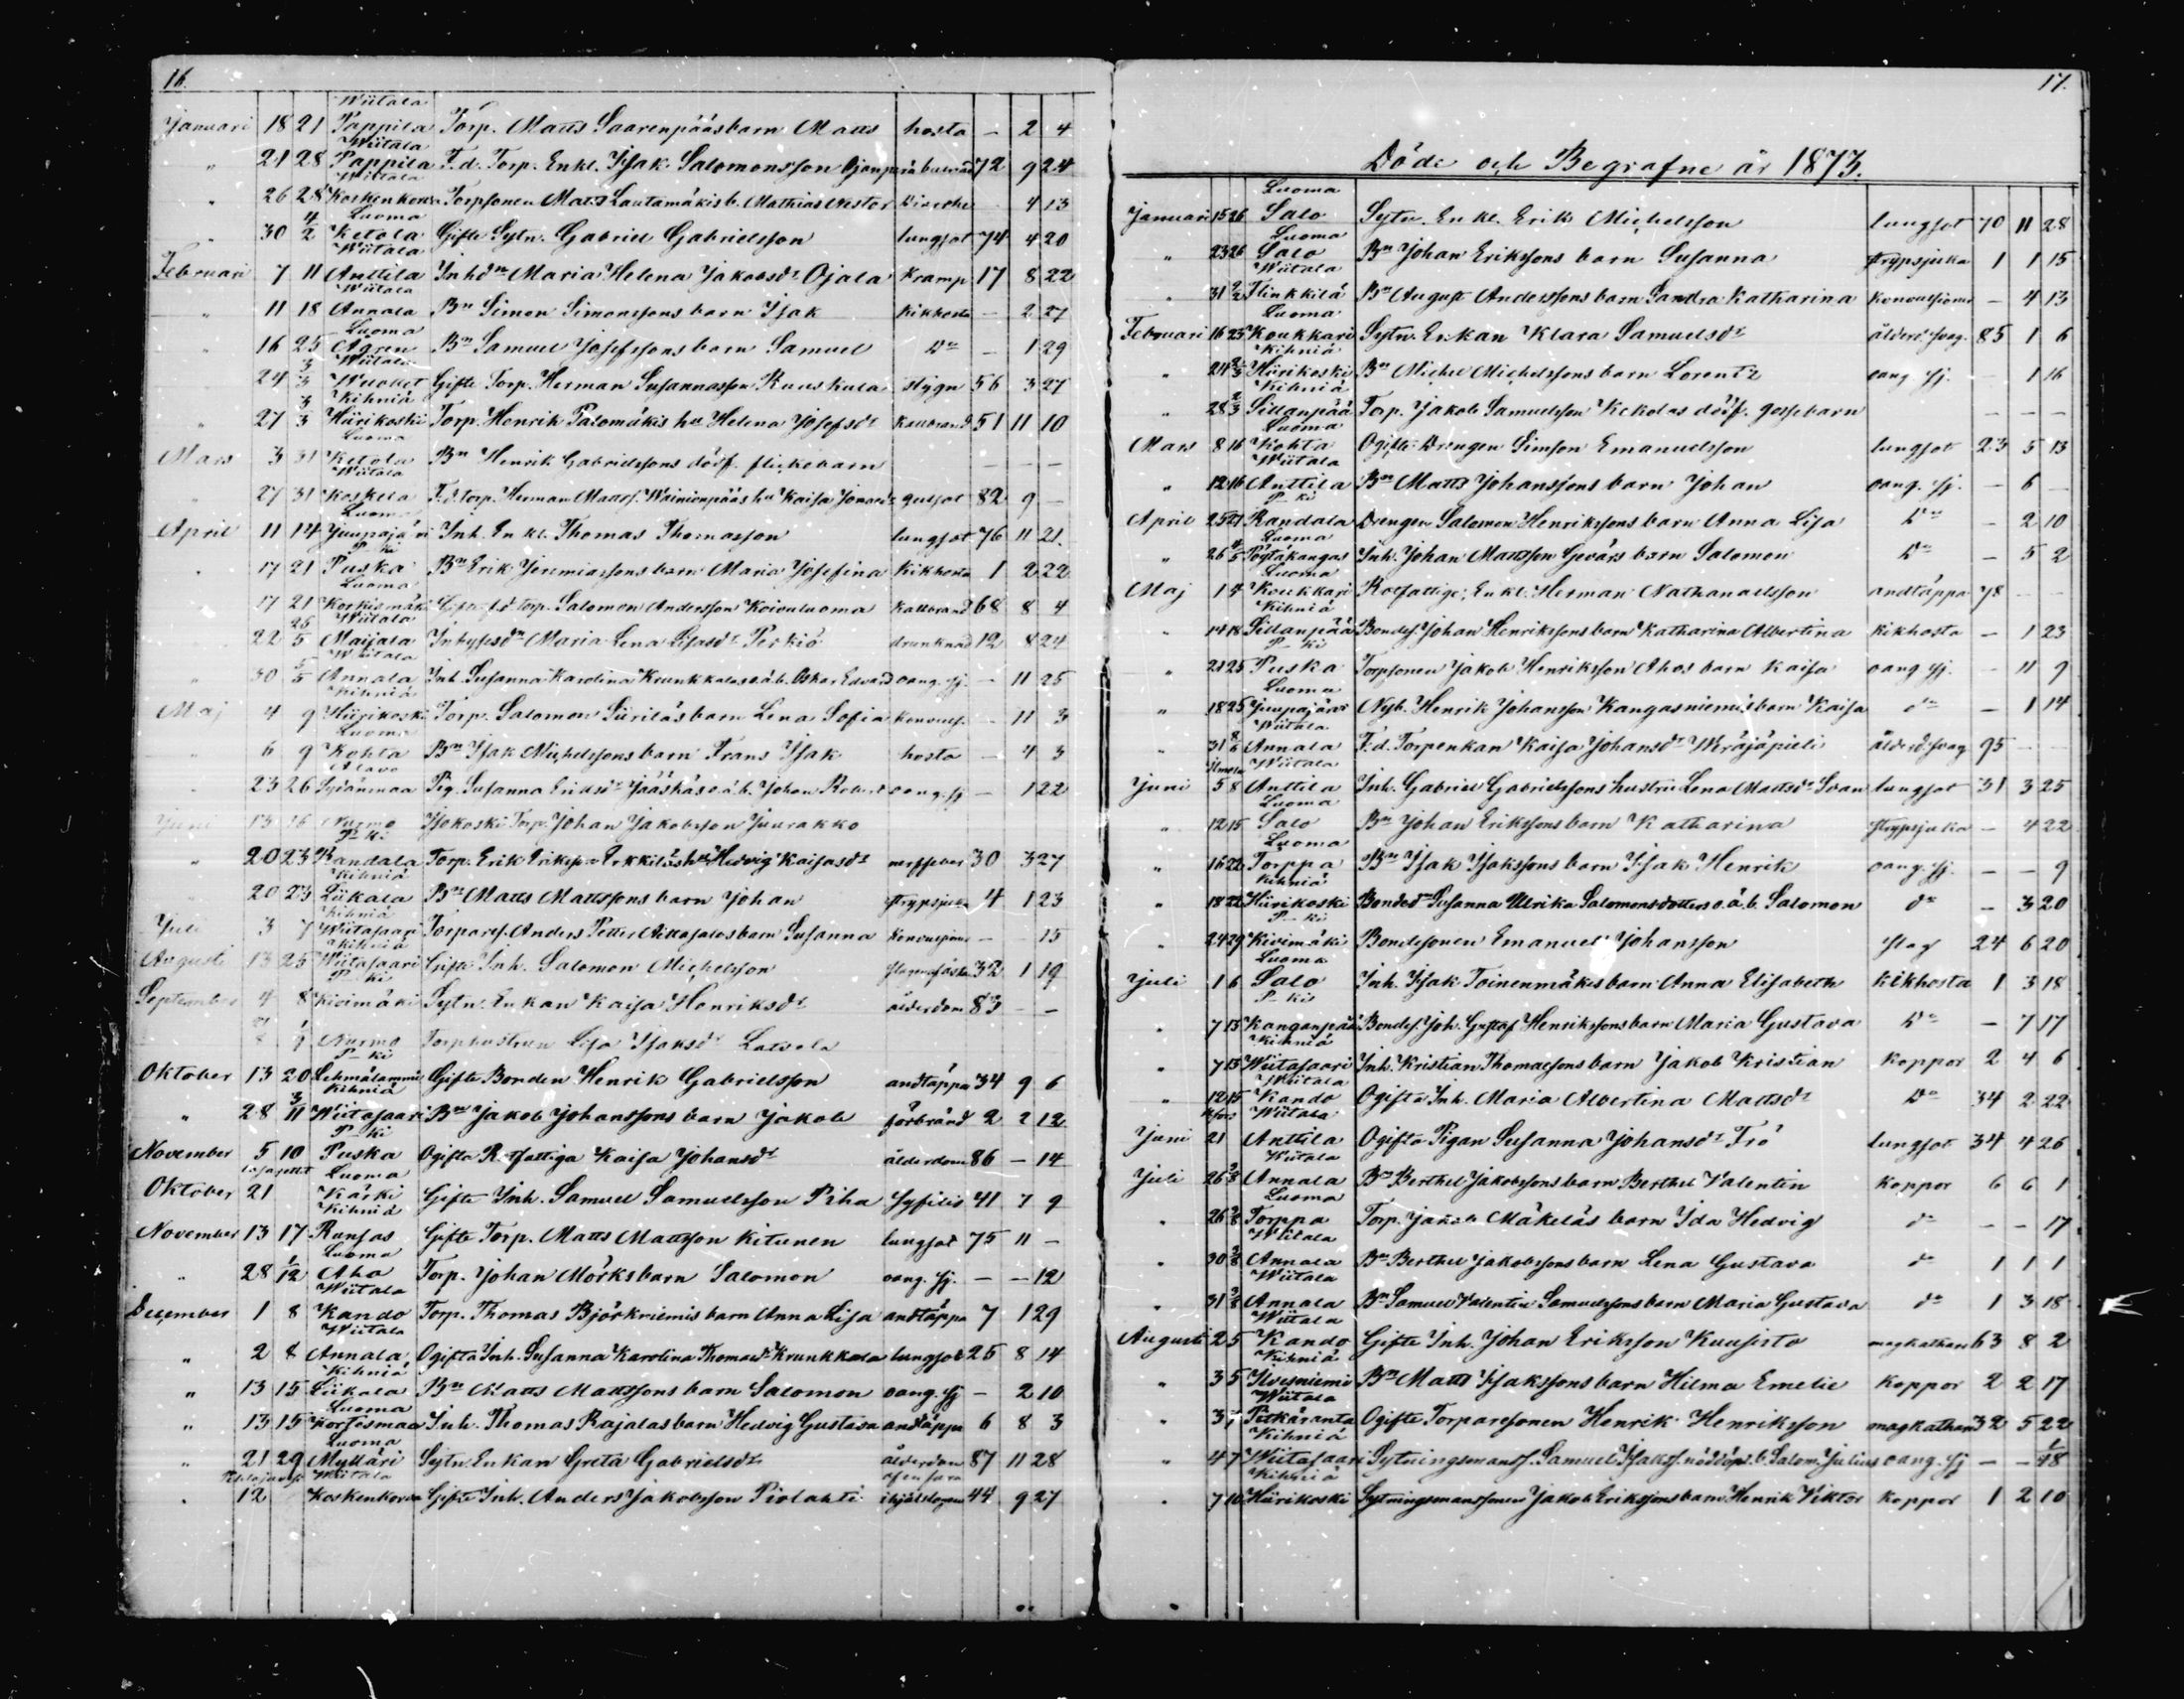 16.
Wiitala
Januari 18 21 Pappila Torp. Matts Saarenpääs barn Matts hosta - 2 4
Wiitala
" 21 28 Pappila F.d. Torp. Enkl. Isak Salomonsson 72 9 24
Wiitala
" 26 28 Koskenkorva Torpsonen Matts Lautamäkis b. Mathias Nestor - 4 13
Luoma
" 30 4/2 Ketola Gifte Sytn. Gabriel Gabrielsson lungsot 74 4 20
Wiitala
Februari 7 11 Anttila Inhdn Maria Helena Jakobsdr Ojala Kramp 17 8 22
Wiitala
" 11 18 Annala Bn Simon Simonssons barn Isak kikhosta - 2 27
Luoma
" 16 25 Ågren Bn Samuel Josefssons barn Samuel Do - 1 29
Wiitala
" 24 3/3 Wuollet Gifte Torp. Herman Susannasson Ruuskula stygn 56 3 27
Kihniä
" 27 3/3 Hiirikoski Torp. Henrik Palomäkis hu Helena Josefsdr Kallbrand 51 11 10
Luoma
Mars 3 31 Ketola Bn Henrik Gabrielssons dödf. flickobarn - - -
Wiitala
" 27 31 Koskela F.d. torp. Herman Mattss. Wainionpääs hu Kaisa gulsot 82 9 -
Luoma
April 11 14 Juupajärvi Inh. Enkl. Thomas Thomasson lungsot 76 11 21
P-ki
" 17 21 Puska Bn Erik Jeremiassons barn Maria Josefina Kikhosta 1 2 22
Luoma
" 17 21 Korkiamäki f.d. torp. Salomon Andersson Koivuluoma Kallbrand 68 8 4
Wiitala
" 22 25/5 Maijala Inhysesdn Maria Lena Lisasdr Perkiö drunknad 12 8 24
Wiitala
" 30 5/5 Annala Inh. Susanna Karolina Krunkkalas o.ä.b. Oskar Edvard oang. sj. - 11 25
Kihniä
Maj 4 9 Hiirikoski Torp. Salomon Siiriläs barn Lena Sofia Konvuls. - 11 3
Luoma
" 6 9 Kohta Bn Isak Michelssons barn Frans Isak hosta - 4 3
" 23 26 Sydänmaa Pig. Susanna Eriksdr Jääskäs o.ä.b. Johan Robert oang. sj. - 1 22
Juni 13 16 Nurmo Isokoski Torp. Johan Jakobsson Juurakko
P-ki
" 20 23 Randala Torp. Erik Eriksson Erkkiläs hu Hedvig Kaisasdr nervfeber 30 3 27
Kihniä
" 20 23 Liikala Bn Matts Mattssons barn Johan strypsjuka 4 1 23
Kihniä
Juli 3 7 Wiitasaari Torpares. Anders Petter Aittasalos barn Susanna Konvulsioner - - 15
Kihniä
Augusti 13 25 Wiitasaari Gifte Inh. Salomon Michelsson 32 1 19
P-ki
September 4 8 Kivimäki Sytn. Enkan Kaisa Henriksdr ålderdom 83 - -
Nurmo Torphustrun Lisa Isaksdr Latvala
P-ki
Oktober 13 20 Lehmälammi Gifte Bonden Henrik Gabrielsson andtäppa 34 9 6
Kihniä
" 28 3/11 Wiitasaari Bn Jakob Johanssons barn Jakob förbränd 2 2 12
P-ki
November 5 10 Puska Ogifta Rotfattiga Kaisa Johansdr ålderdom 86 - 14
Luoma
Oktober 21 Kärki Gifte Inh. Samuel Samuelsson Piha Syfilis 41 7 9
Kihniä
November 13 17 Runsas Gifte Torp. Matts Mattsson Kitunen lungsot 75 11 -
Luoma
" 28 1/12 Aho Torp. Johan Mörks barn Salomon oang. sj. - - 12
Wiitala
December 1 8 Kando Torp. Thomas Björkniemis barn Anna Lisa andtäppa 7 1 29
Wiitala
" 2 8 Annala Ogifta Inh. Susanna Karolina Thomasdr Krunkkala lungsot 25 8 14
Kihniä
" 13 15 Liikala Bn Matts Mattssons barn Salomon oang. sj. - 2 10
Luoma
" 13 15 Korjosmaa Inh. Thomas Rajalas barn Hedvig Gustava andtäppa 6 8 3
Luoma
" 21 29 Mylläri Sytn. Enkan Greta Gabrielsdr ålderdom 87 11 28
Wiitala
" 12 Koskenkorva Gifte Inh. Anders Jakobsson Piolahti 44 9 27
17.
Döde och Begrafne år 1873.
Luoma
Januari 15 26 Salo Sytn. Enkl. Erik Michelsson lungsot 70 11 28
Luoma
" 23 26 Salo Bn Johan Erikssons barn Susanna strypsjuka 1 1 15
Wiitala
" 31 2/2 Hinkkilä Bn August Anderssons barn Sandra Katharina Konvulsioner - 4 13
Luoma
Februari 16 25 Koukkari Sytn. Enkan Klara Samuelsdr ålderd. svag. 85 1 6
Kihniä
" 21 2/3 Hiirikoski Bn Michel Michelssons barn Lorentz oang. sj. - 1 16
Kihniä
" 28 2/3 Sillanpää Torp. Jakob Samuelsson Kekolas dödf. gossebarn - - -
Luoma
Mars 8 16 Kohta Ogifte Drengen Simson Emanuelsson lungsot 23 5 13
Wiitala
" 12 16 Anttila Bn Matts Johanssons barn Johan oang. sj. - 6 -
P-ki
April 25 27 Randala Drengen Salomon Henrikssons barn Anna Lisa Do - 2 10
Luoma
" 26 4/5 Pöytäkangas Inh. Johan Mattsson Gevärs barn Salomon Do - 5 2
Luoma
Maj 1 4 Koukkari Rotfattige, Enkl. Herman Nathanaelsson andtäppa 78 - -
Kihniä
" 14 18 Sillanpää Bondes. Johan Henrikssons barn Katharina Albertina Kikhosta - 1 23
P-ki
" 21 25 Puska Torpsonen Jakob Henriksson Ahos barn Kaisa oang. sj. - 11 9
Luoma
" 18 25 Juupajärvi Nyb. Henrik Johansson Kangasniemis barn Kaisa do - 1 14
Wiitala
" 31 8/6 Annala F.d. Torpenkan Kaisa Johansdr ålderd. svag 95 - -
Ilmola Wiitala
Juni 5 8 Anttila Inh. Gabriel Gabrielssons hustru Lena Mattsdr Svan lungsot 31 3 25
Luoma
" 12 15 Salo Bn Johan Erikssons barn Katharina strypsjuka - 4 22
Luoma
" 16 22 Torppa Bn Isak Isakssons barn Isak Henrik oang. sj. - - 9
Kihniä
" 18 22 Hiirikoski Bondedn Susanna Ulrika Salomonsdotters o.ä.b. Salomon do - 3 20
P-ki
" 24 29 Kivimäki Bondesonen Emanuel Johansson slag 24 6 20
Luoma
Juli 1 6 Salo Inh. Isak Toinenmäkis barn Anna Elisabeth Kikhosta 1 3 18
P-ki
" 7 13 Kanganpää Bondes. Joh. Gustaf Henrikssons barn Maria Gustava Do - 7 17
Kihniä
" 7 13 Wiitasaari Inh. Kristian Thomassons barn Jakob Kristian Koppor 2 4 6
Wiitala
" 12 15 Kando Ogifta Inh. Maria Albertina Mattsdr Do 34 2 22
Wiitala
Juni 21 Anttila Ogifta Pigan Susanna Johansdr Frö lungsot 34 4 26
Wiitala
Juli 26 2/8 Annala Bn Berthel Jakobssons barn Berthel Valentin Koppor 6 6 1
Luoma
" 26 2/8 Torppa Torp. Jakob Mäkeläs barn Ida Hedvig do - - 17
Wiitala
" 30 2/8 Annala Bn Berthel Jakobssons barn Lena Gustava do 1 1 1
Wiitala
" 31 2/8 Annala Bn Samuel Valentin Samuelssons barn Maria Gustava do 1 3 18
Wiitala
Augusti 2 5 Kando Gifte Inh. Johan Eriksson Kuusisto magkathar 63 8 2
Kihniä
" 3 5 Ilvesniemi Bn Matts Isakssons barn Hilma Emelie Koppor 2 2 17
Wiitala
" 3 7 Pitkäranta Ogifte Torparesonen Henrik Henriksson magkathar 32 5 22
Kihniä
" 4 7 Wiitasaari Sytningsmanss. Samuel Isakss. nöddöpt. b. Salom. Julius oang. sj. - -
Kihniä
" 7 10 Hiirikoski Sytningsmanssonen Jakob Erikssons barn Henrik Viktor Koppor 1 2 10